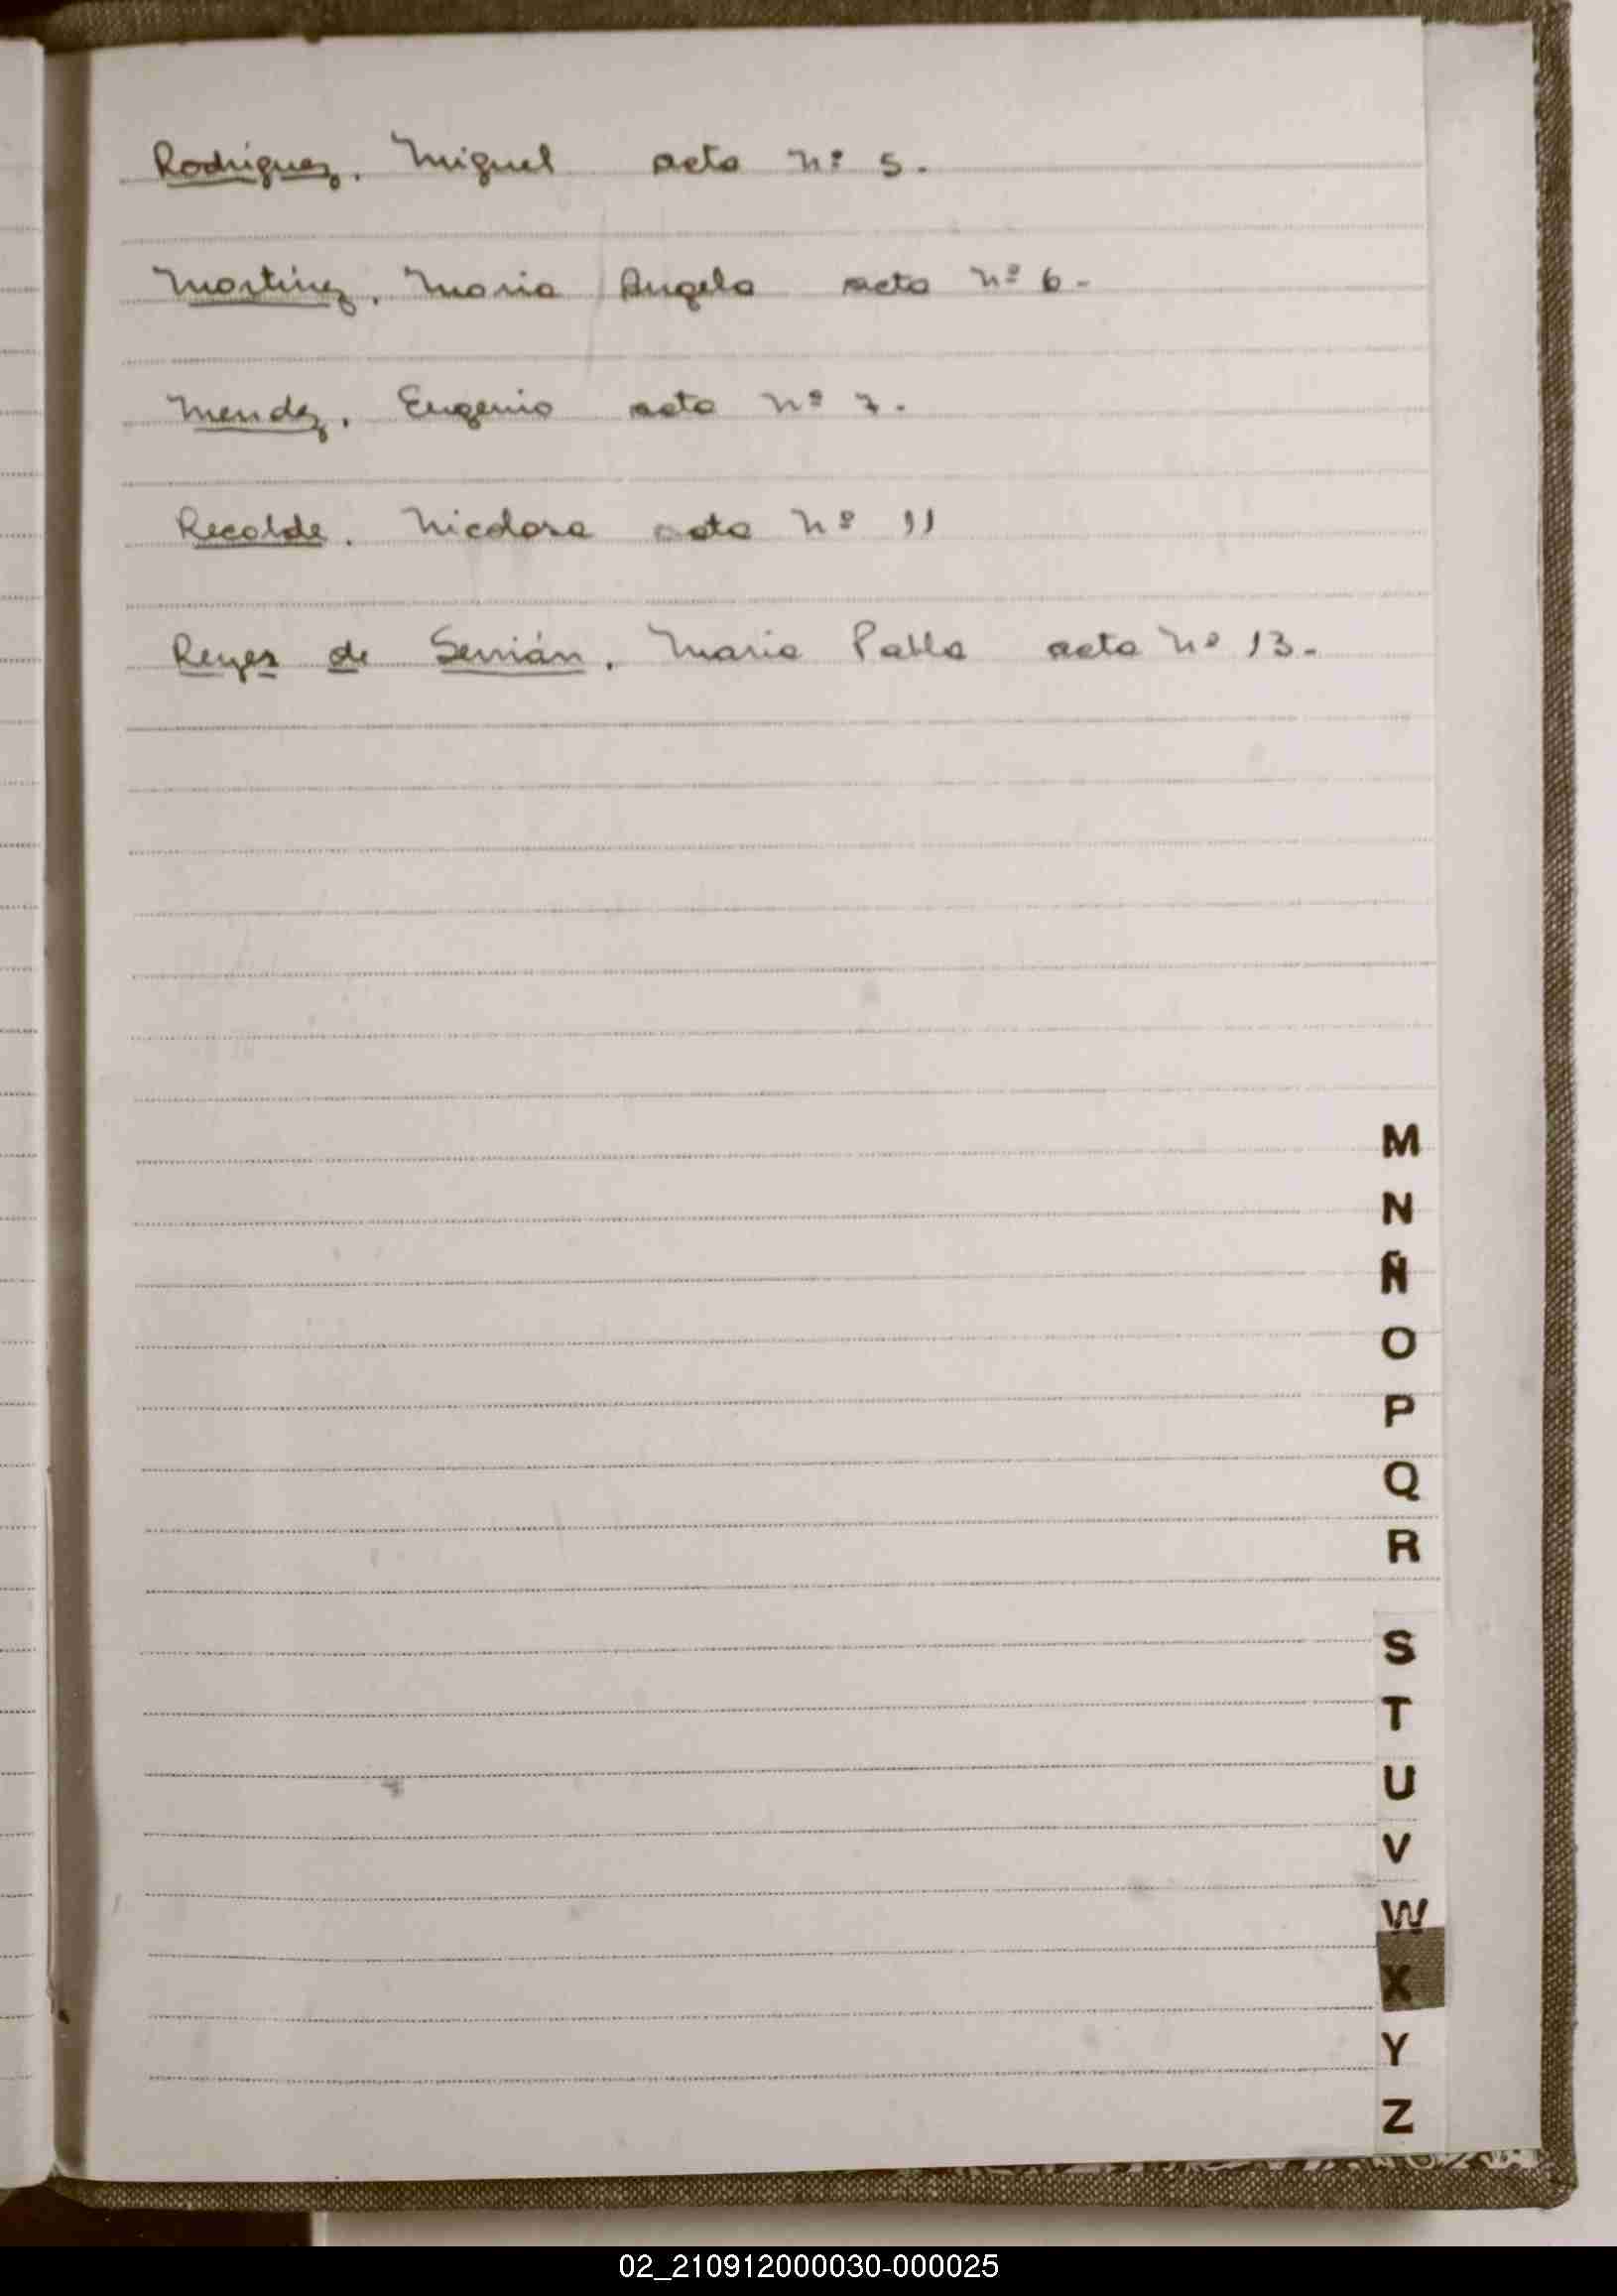 Rodriguez, Miguel acta nº 5.
Martínez, Maria Angela acta nº 6-
Mendez, Eugenio acta nº 7.
Recalde, Nicolasa acta nº 11
Reyes de Servián, Maria Pabla acta nº 13-
M
N
Ñ
O
P
Q
R
S
T
U
V
W
X
Y
Z
02_210912000030-000025